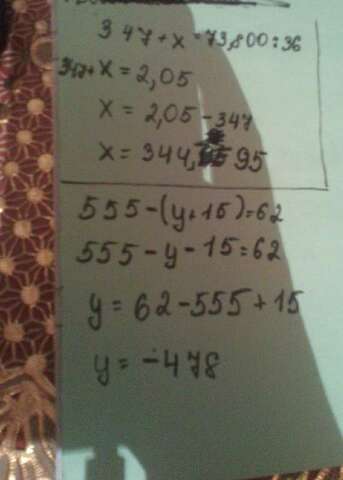 347+x=73,800:36
347+x=2,05
x=2,05-347
x=344,95
555-(y+15)=62
555-y-15=62
y=62-555+15
y=-478